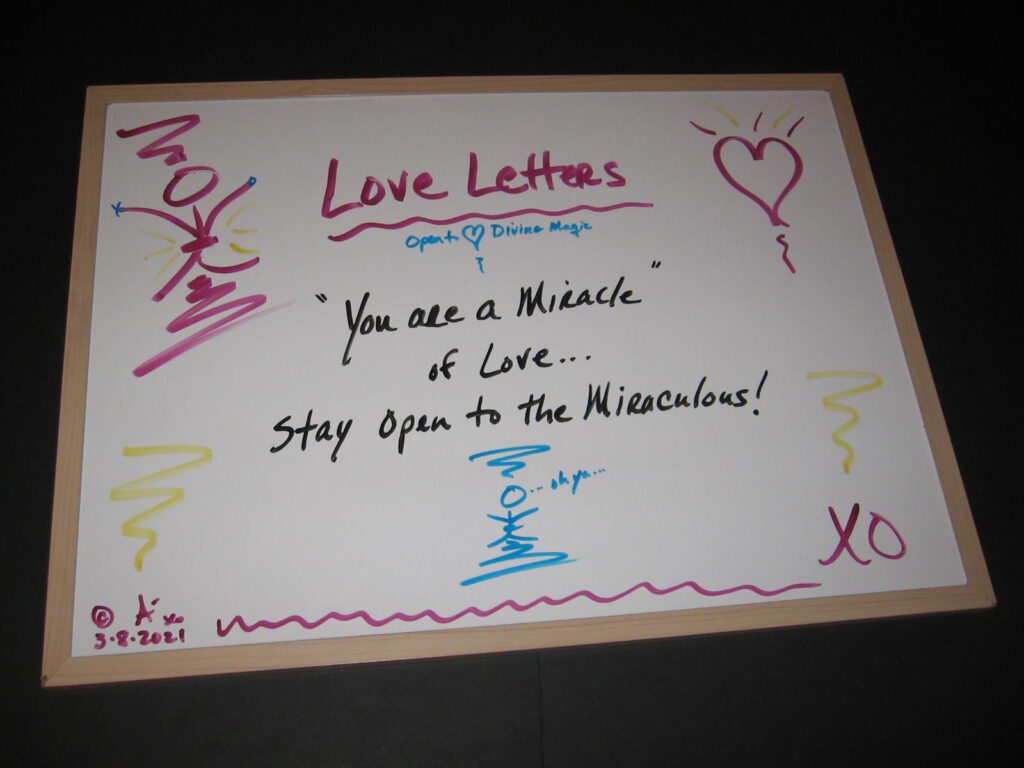 Love Letters
Open to Divine Magic
"You are a Miracle"
of Love...
Stay Open to the Miraculous!
...oh ya...
XO
© A xo
3-8-2021